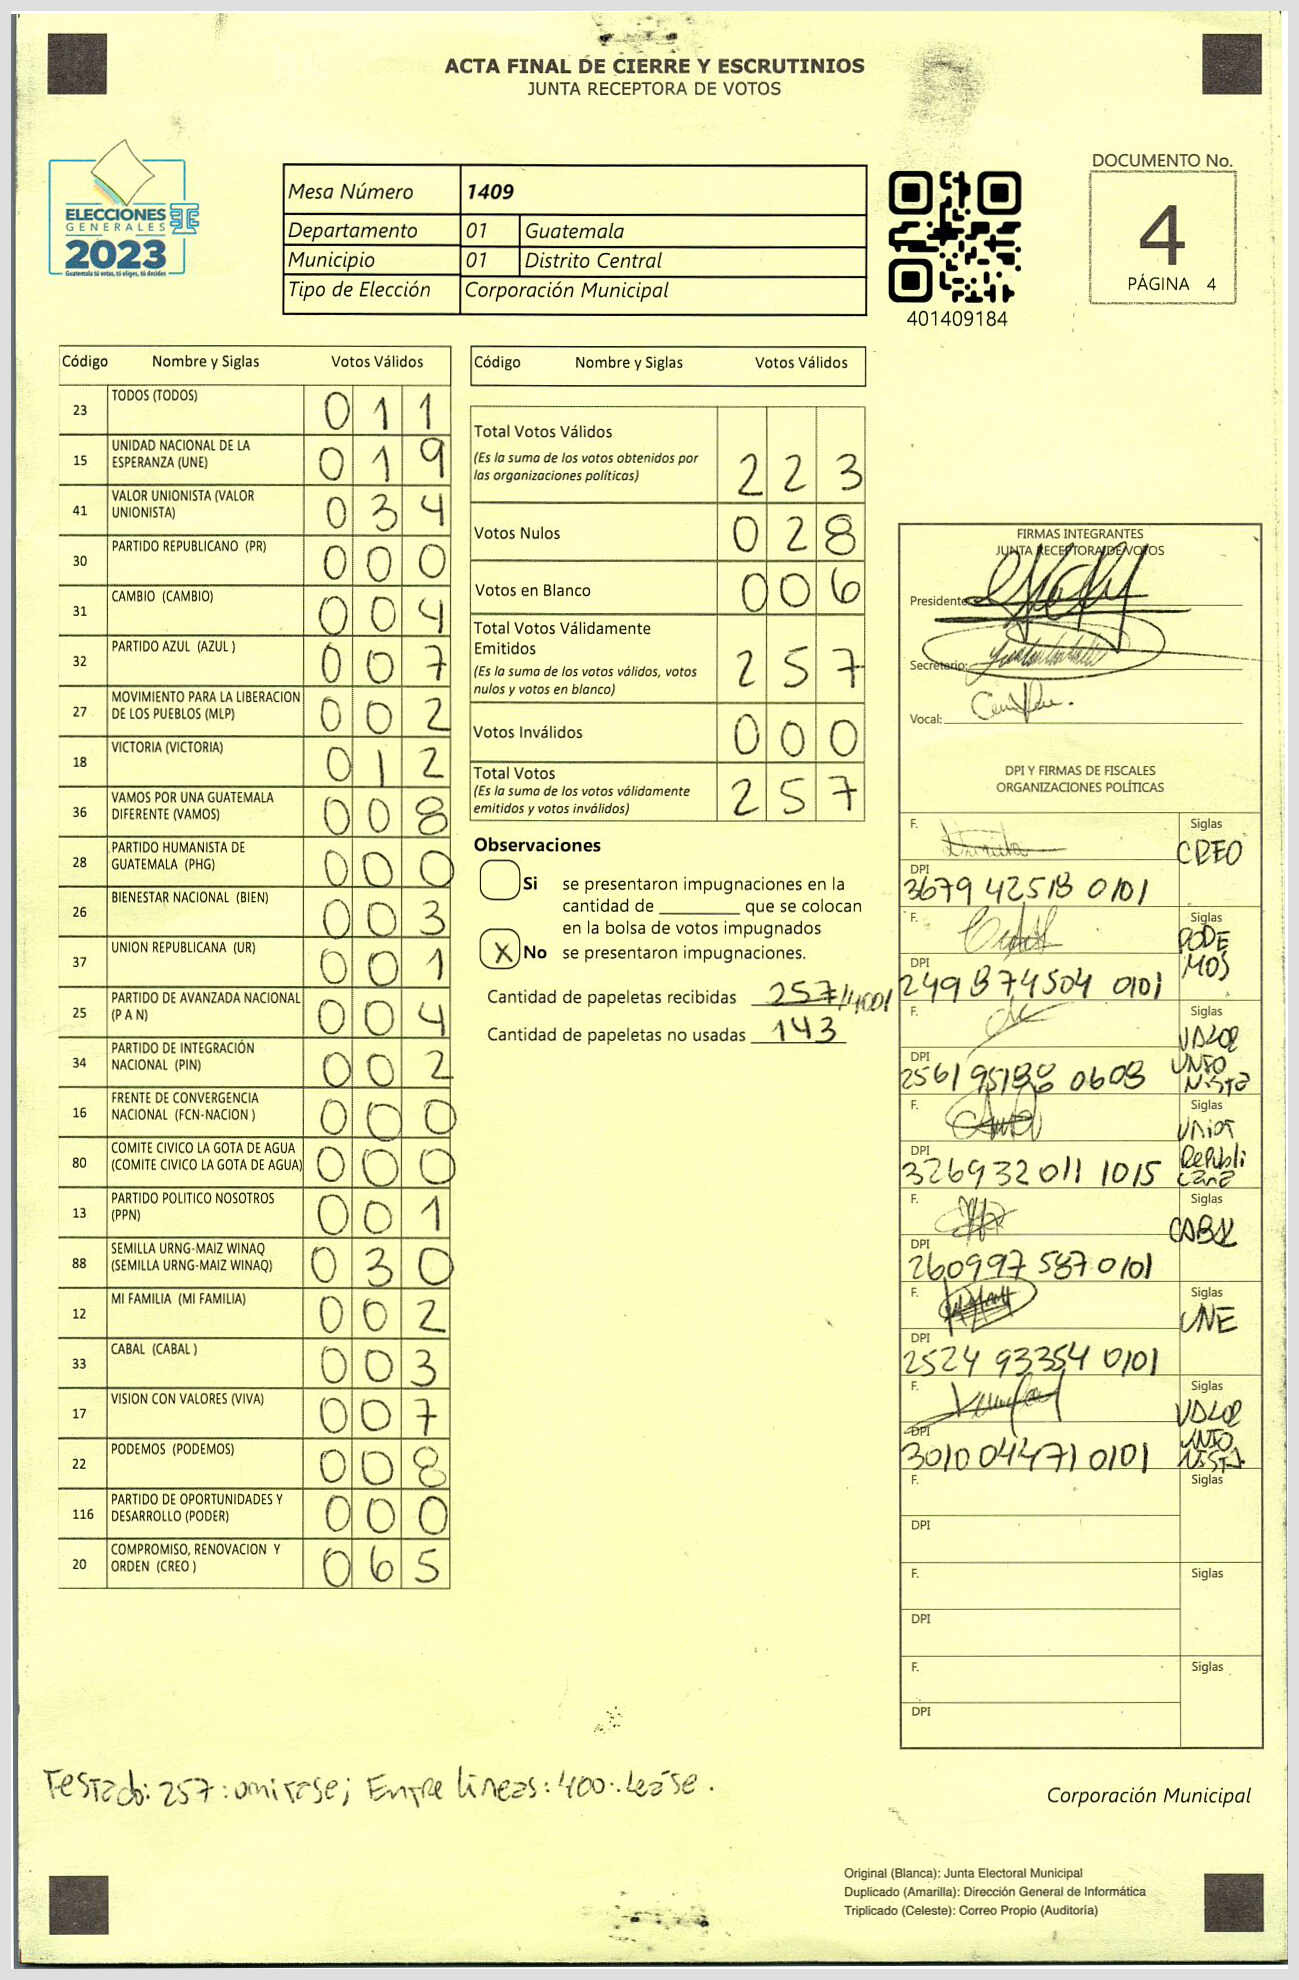 ACTA FINAL DE CIERRE Y ESCRUTINIOS
JUNTA RECEPTORA DE VOTOS
ELECCIONES
GENERALES
2023
Guatemala tú votas, tú eliges, tú decides
Mesa Número 1409
Departamento 01 Guatemala
Municipio 01 Distrito Central
Tipo de Elección Corporación Municipal
401409184
DOCUMENTO No.
4
PÁGINA 4
Código Nombre y Siglas Votos Válidos
23 TODOS (TODOS) 0 1 1
15 UNIDAD NACIONAL DE LA ESPERANZA (UNE) 0 1 9
41 VALOR UNIONISTA (VALOR UNIONISTA) 0 3 4
30 PARTIDO REPUBLICANO (PR) 0 0 0
31 CAMBIO (CAMBIO) 0 0 4
32 PARTIDO AZUL (AZUL ) 0 0 7
27 MOVIMIENTO PARA LA LIBERACION DE LOS PUEBLOS (MLP) 0 0 2
18 VICTORIA (VICTORIA) 0 1 2
36 VAMOS POR UNA GUATEMALA DIFERENTE (VAMOS) 0 0 8
28 PARTIDO HUMANISTA DE GUATEMALA (PHG) 0 0 0
26 BIENESTAR NACIONAL (BIEN) 0 0 3
37 UNION REPUBLICANA (UR) 0 0 1
25 PARTIDO DE AVANZADA NACIONAL (P A N) 0 0 4
34 PARTIDO DE INTEGRACIÓN NACIONAL (PIN) 0 0 2
16 FRENTE DE CONVERGENCIA NACIONAL (FCN-NACION ) 0 0 0
80 COMITE CIVICO LA GOTA DE AGUA (COMITE CIVICO LA GOTA DE AGUA) 0 0 0
13 PARTIDO POLITICO NOSOTROS (PPN) 0 0 1
88 SEMILLA URNG-MAIZ WINAQ (SEMILLA URNG-MAIZ WINAQ) 0 3 0
12 MI FAMILIA (MI FAMILIA) 0 0 2
33 CABAL (CABAL ) 0 0 3
17 VISION CON VALORES (VIVA) 0 0 7
22 PODEMOS (PODEMOS) 0 0 8
116 PARTIDO DE OPORTUNIDADES Y DESARROLLO (PODER) 0 0 0
20 COMPROMISO, RENOVACION Y ORDEN (CREO ) 0 6 5
Código Nombre y Siglas Votos Válidos
Total Votos Válidos
(Es la suma de los votos obtenidos por
las organizaciones políticas) 2 2 3
Votos Nulos 0 2 8
Votos en Blanco 0 0 6
Total Votos Válidamente
Emitidos
(Es la suma de los votos válidos, votos
nulos y votos en blanco) 2 5 7
Votos Inválidos 0 0 0
Total Votos
(Es la suma de los votos válidamente
emitidos y votos inválidos) 2 5 7
Observaciones
Si se presentaron impugnaciones en la
cantidad de ________ que se colocan
en la bolsa de votos impugnados
X No se presentaron impugnaciones.
Cantidad de papeletas recibidas 257/400/
Cantidad de papeletas no usadas 143
FIRMAS INTEGRANTES
JUNTA RECEPTORA DE VOTOS
Presidente:
Secretario:
Vocal:
DPI Y FIRMAS DE FISCALES
ORGANIZACIONES POLÍTICAS
F. Siglas
CREO
DPI
3679 42518 0101
F. Siglas
PODE
MOS
DPI
249874504 0101
F. Siglas
VALOR
UNIO
NISTA
DPI
0608
F. Siglas
UNION
Republi
cana
DPI
326932011 1015
F. Siglas
CABAL
DPI
260997 587 0101
F. Siglas
UNE
DPI
2524 93354 0101
F. Siglas
VALOR
UNIO
NISTA
DPI
3010 04471 0101
F. Siglas
DPI
F. Siglas
DPI
F. Siglas
DPI
Testado: 257: omitase; Entre lineas: 400: Léase.
Corporación Municipal
Original (Blanca): Junta Electoral Municipal
Duplicado (Amarilla): Dirección General de Informática
Triplicado (Celeste): Correo Propio (Auditoría)